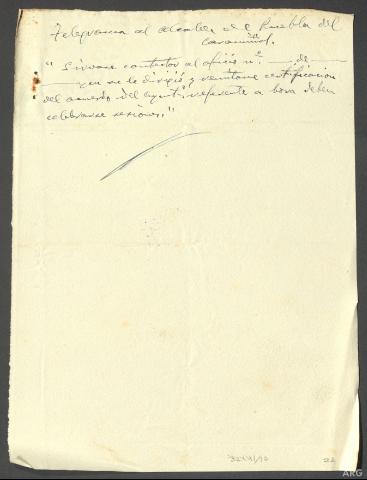 Telegrama al alcalde de Puebla del
Caramiñal.
"Sírvase contestar al oficio nº ____ de ____
____ que se le dirigió y remítame certificación
del acuerdo del aynt.º referente a hora deben
celebrarse sesiones."
22
ARG